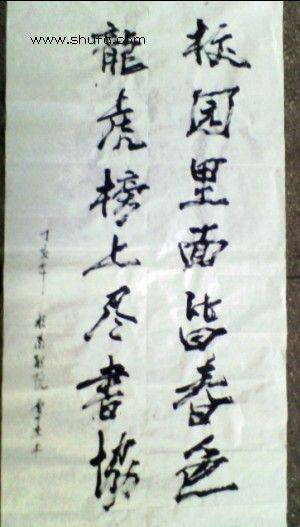 www.shufa.com
校园里面皆春色
龍虎榜上尽書
丁亥年